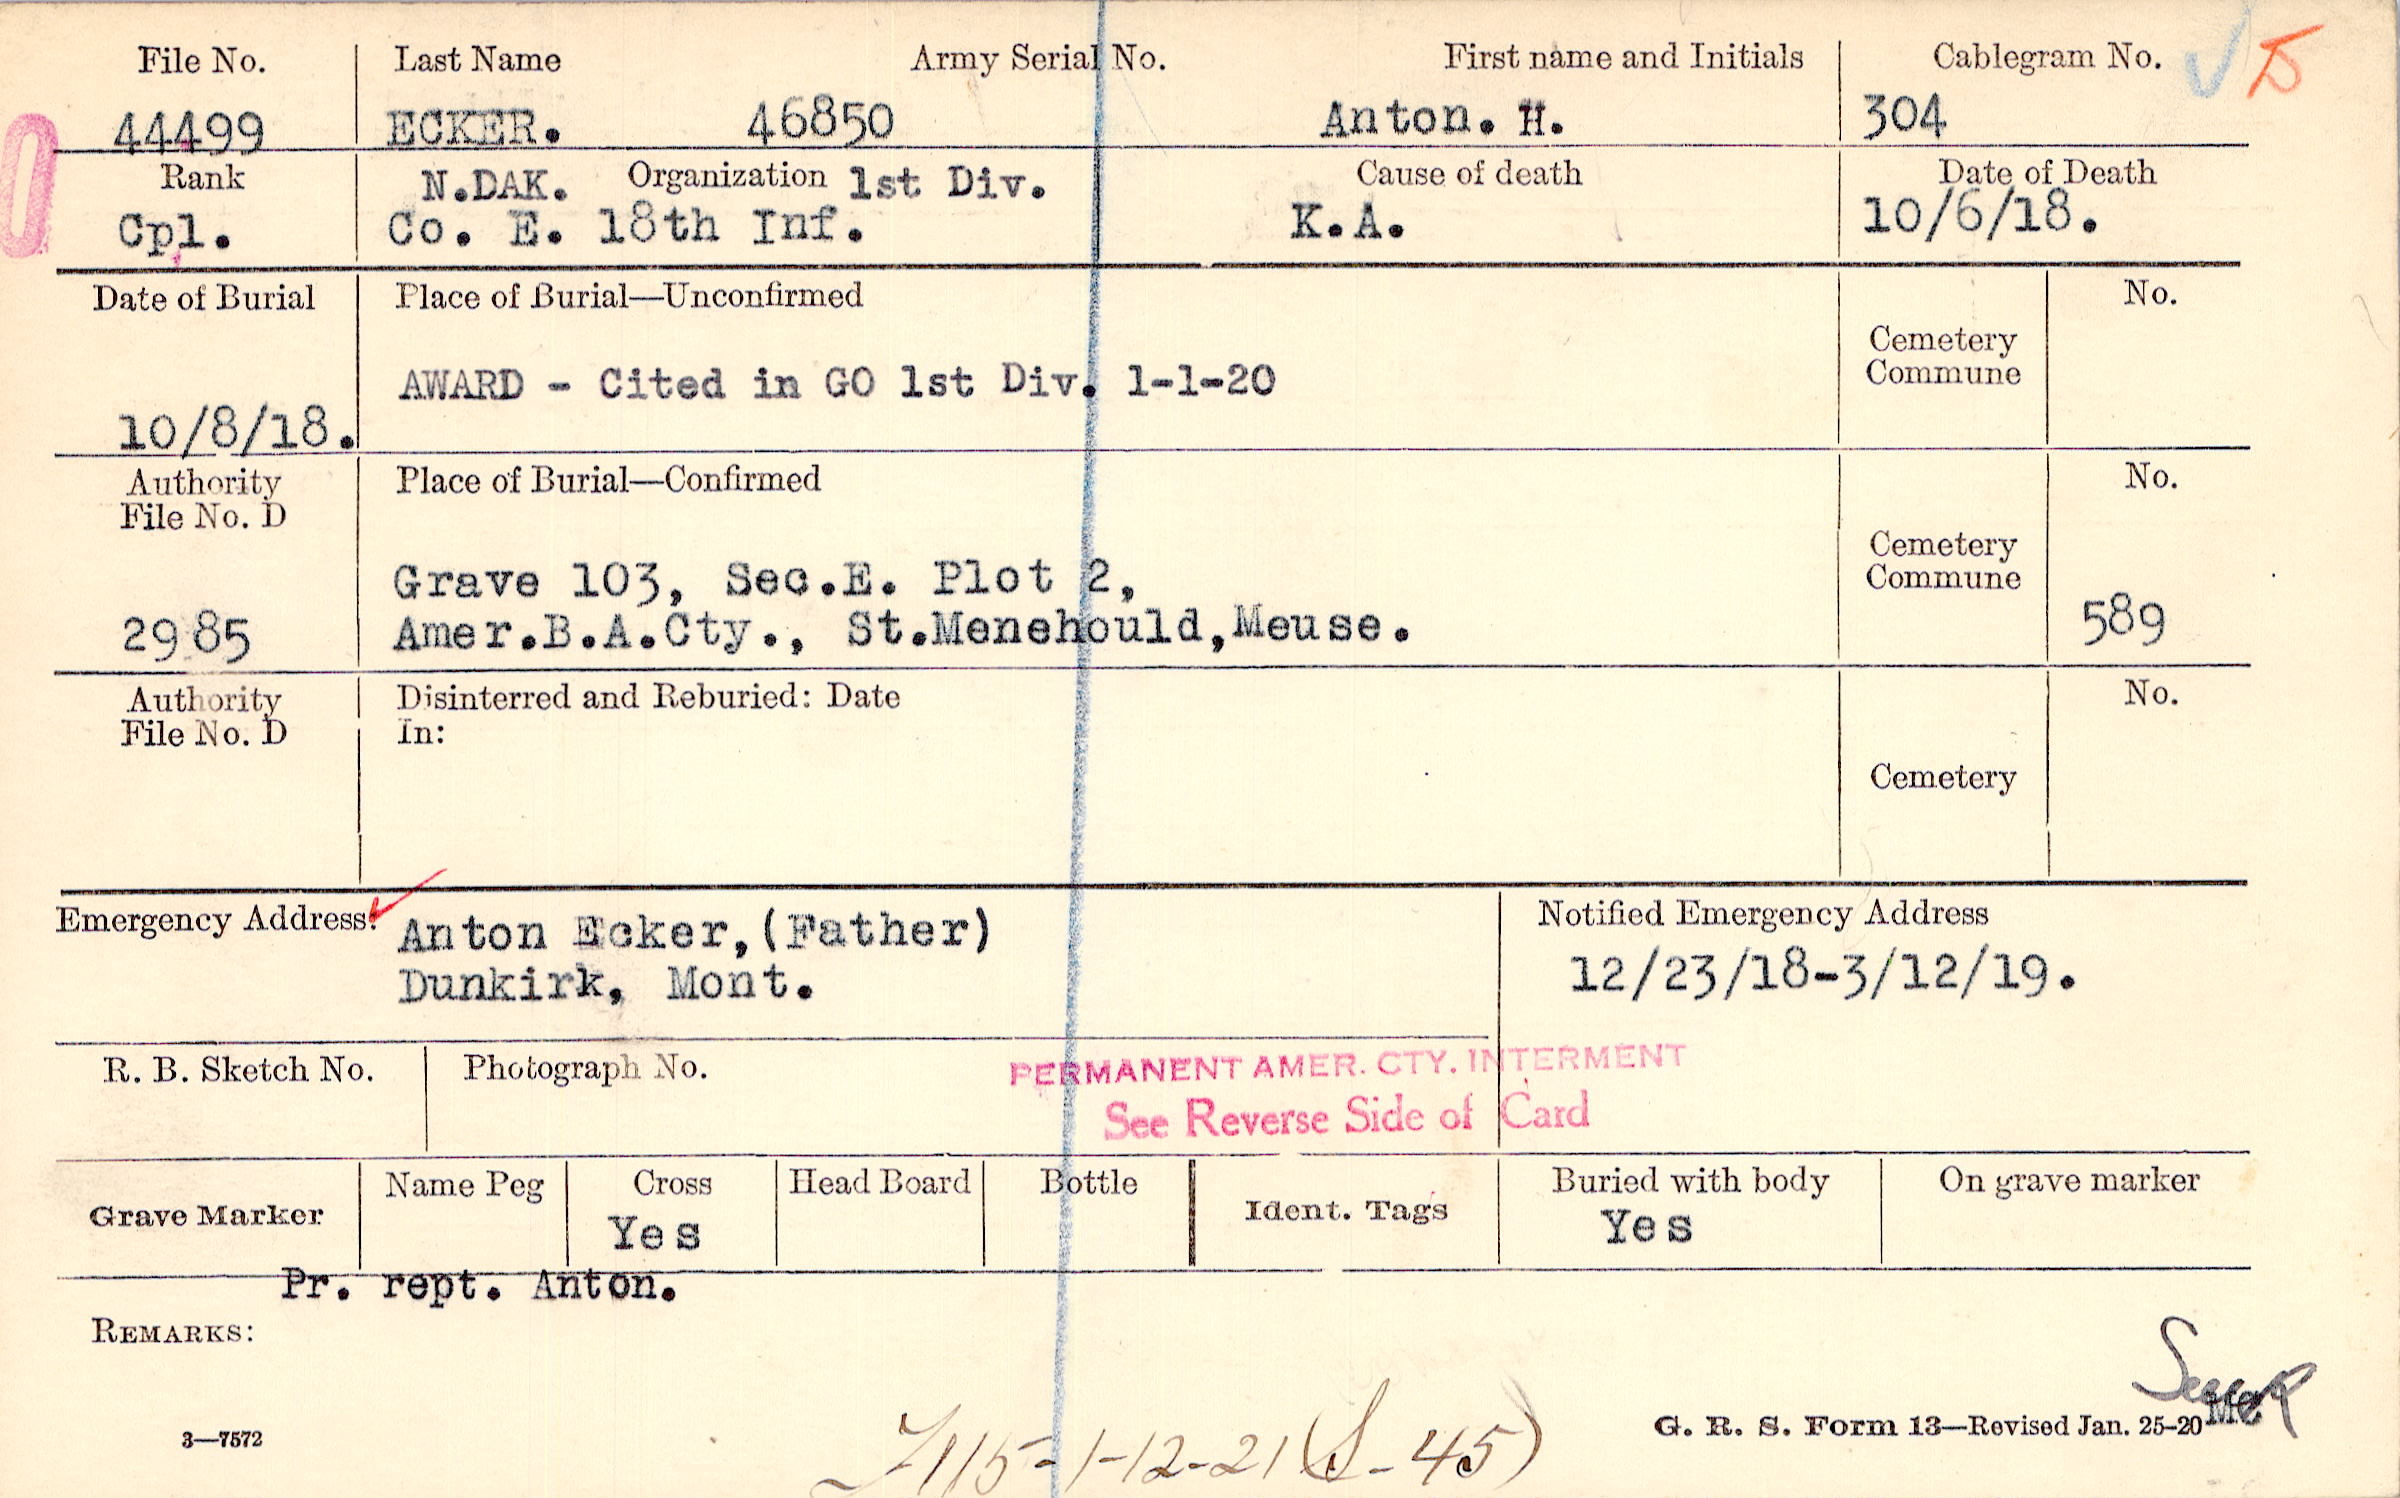 File No. Last Name Army Serial No. First name and Initials Cablegram No.
44499 ECKER. 46850 Anton. H. 304
Rank N.DAK. Organization 1st Div. Cause of death Date of Death
Cpl. Co. E. 18th Inf. K.A. 10/6/18.
Date of Burial Place of Burial—Unconfirmed No.
Cemetery
Commune
AWARD - Cited in GO 1st Div. 1-1-20
10/8/18.
Authority Place of Burial—Confirmed No.
File No. D
Cemetery
Commune
Grave 103, Sec.E. Plot 2,
2985 Amer.B.A.Cty., St.Menehould,Meuse. 589
Authority Disinterred and Reburied: Date No.
File No. D In:
Cemetery
Emergency Address: Anton Ecker,(Father) Notified Emergency Address
Dunkirk, Mont. 12/23/18-3/12/19.
R. B. Sketch No. Photograph No. PERMANENT AMER. CTY. INTERMENT
See Reverse Side of Card
Grave Marker Name Peg Cross Head Board Bottle Ident. Tags Buried with body On grave marker
Yes Yes
Pr. rept. Anton.
REMARKS:
3—7572
1-12-21 (S-45)
G. R. S. Form 13—Revised Jan. 25-20